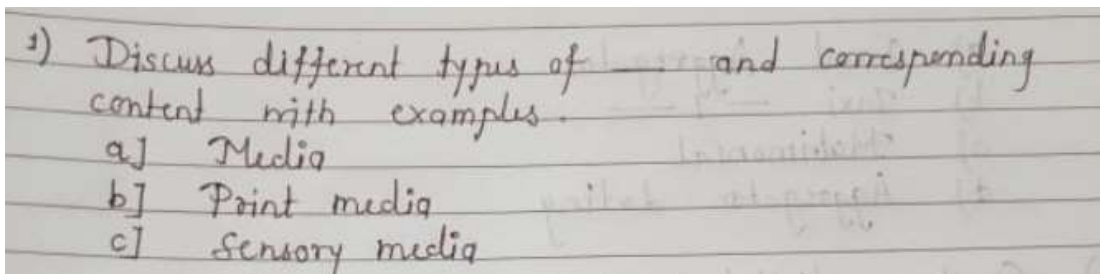 1) Discuss different types of — and corresponding
content with examples.
a] Media
b] Print media
c] Sensory media